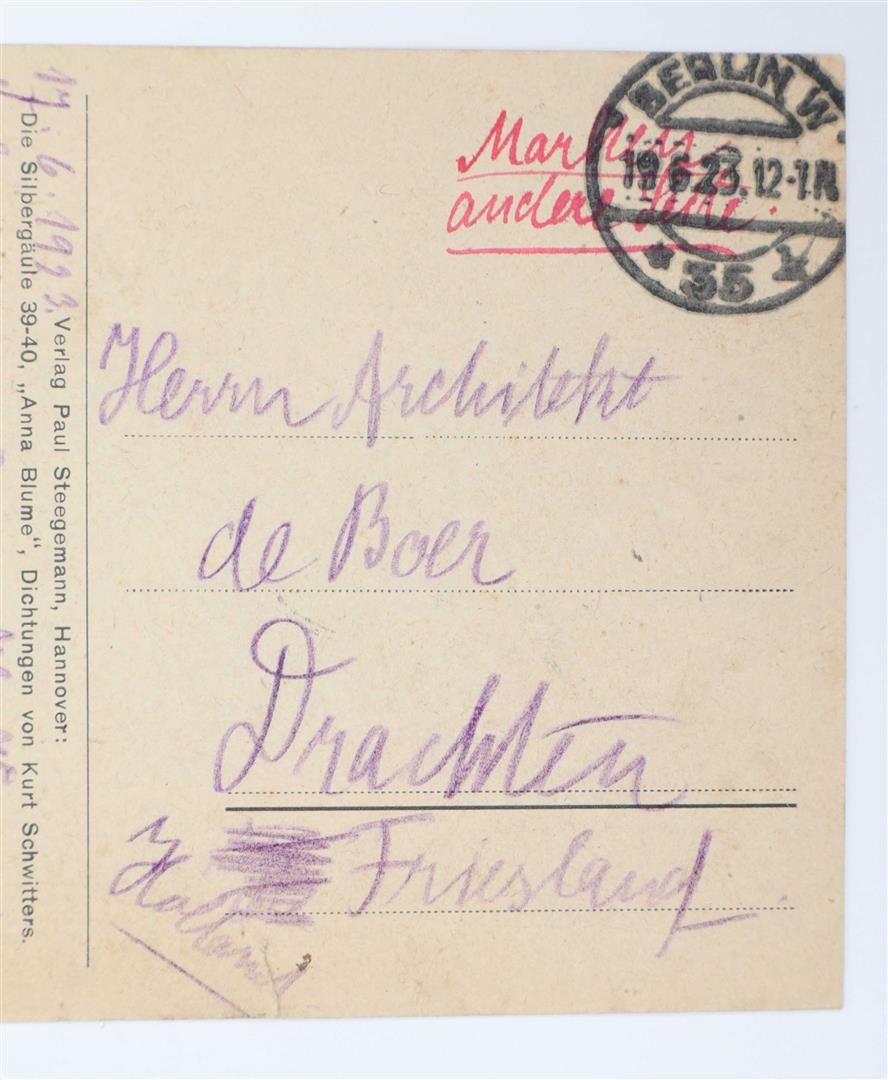 17. 6. 1923.
Verlag Paul Steegemann, Hannover:
Die Silbergäule 39-40, „Anna Blume“, Dichtungen von Kurt Schwitters.
Marken
andere Seite.
BERLIN W
19.6.23.12-1N
* 35
Herrn Architekt
de Boer
Drachten
Friesland.
Holland